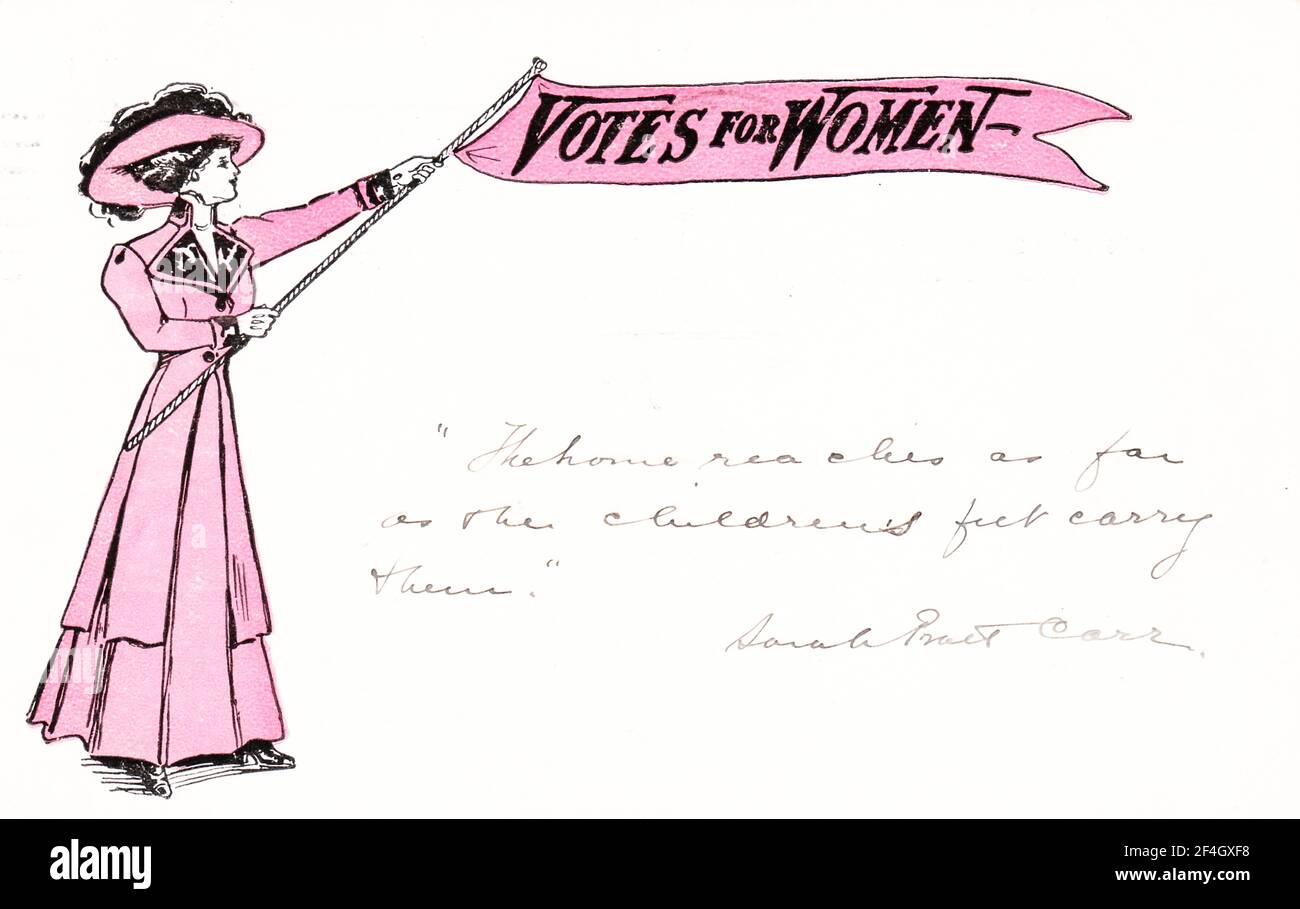 VOTES FOR WOMEN
" The home reaches as far
as the children's feet carry
them."
Sarah Pratt Carr.
alamy
Image ID: 2F4GXF8
www.alamy.com